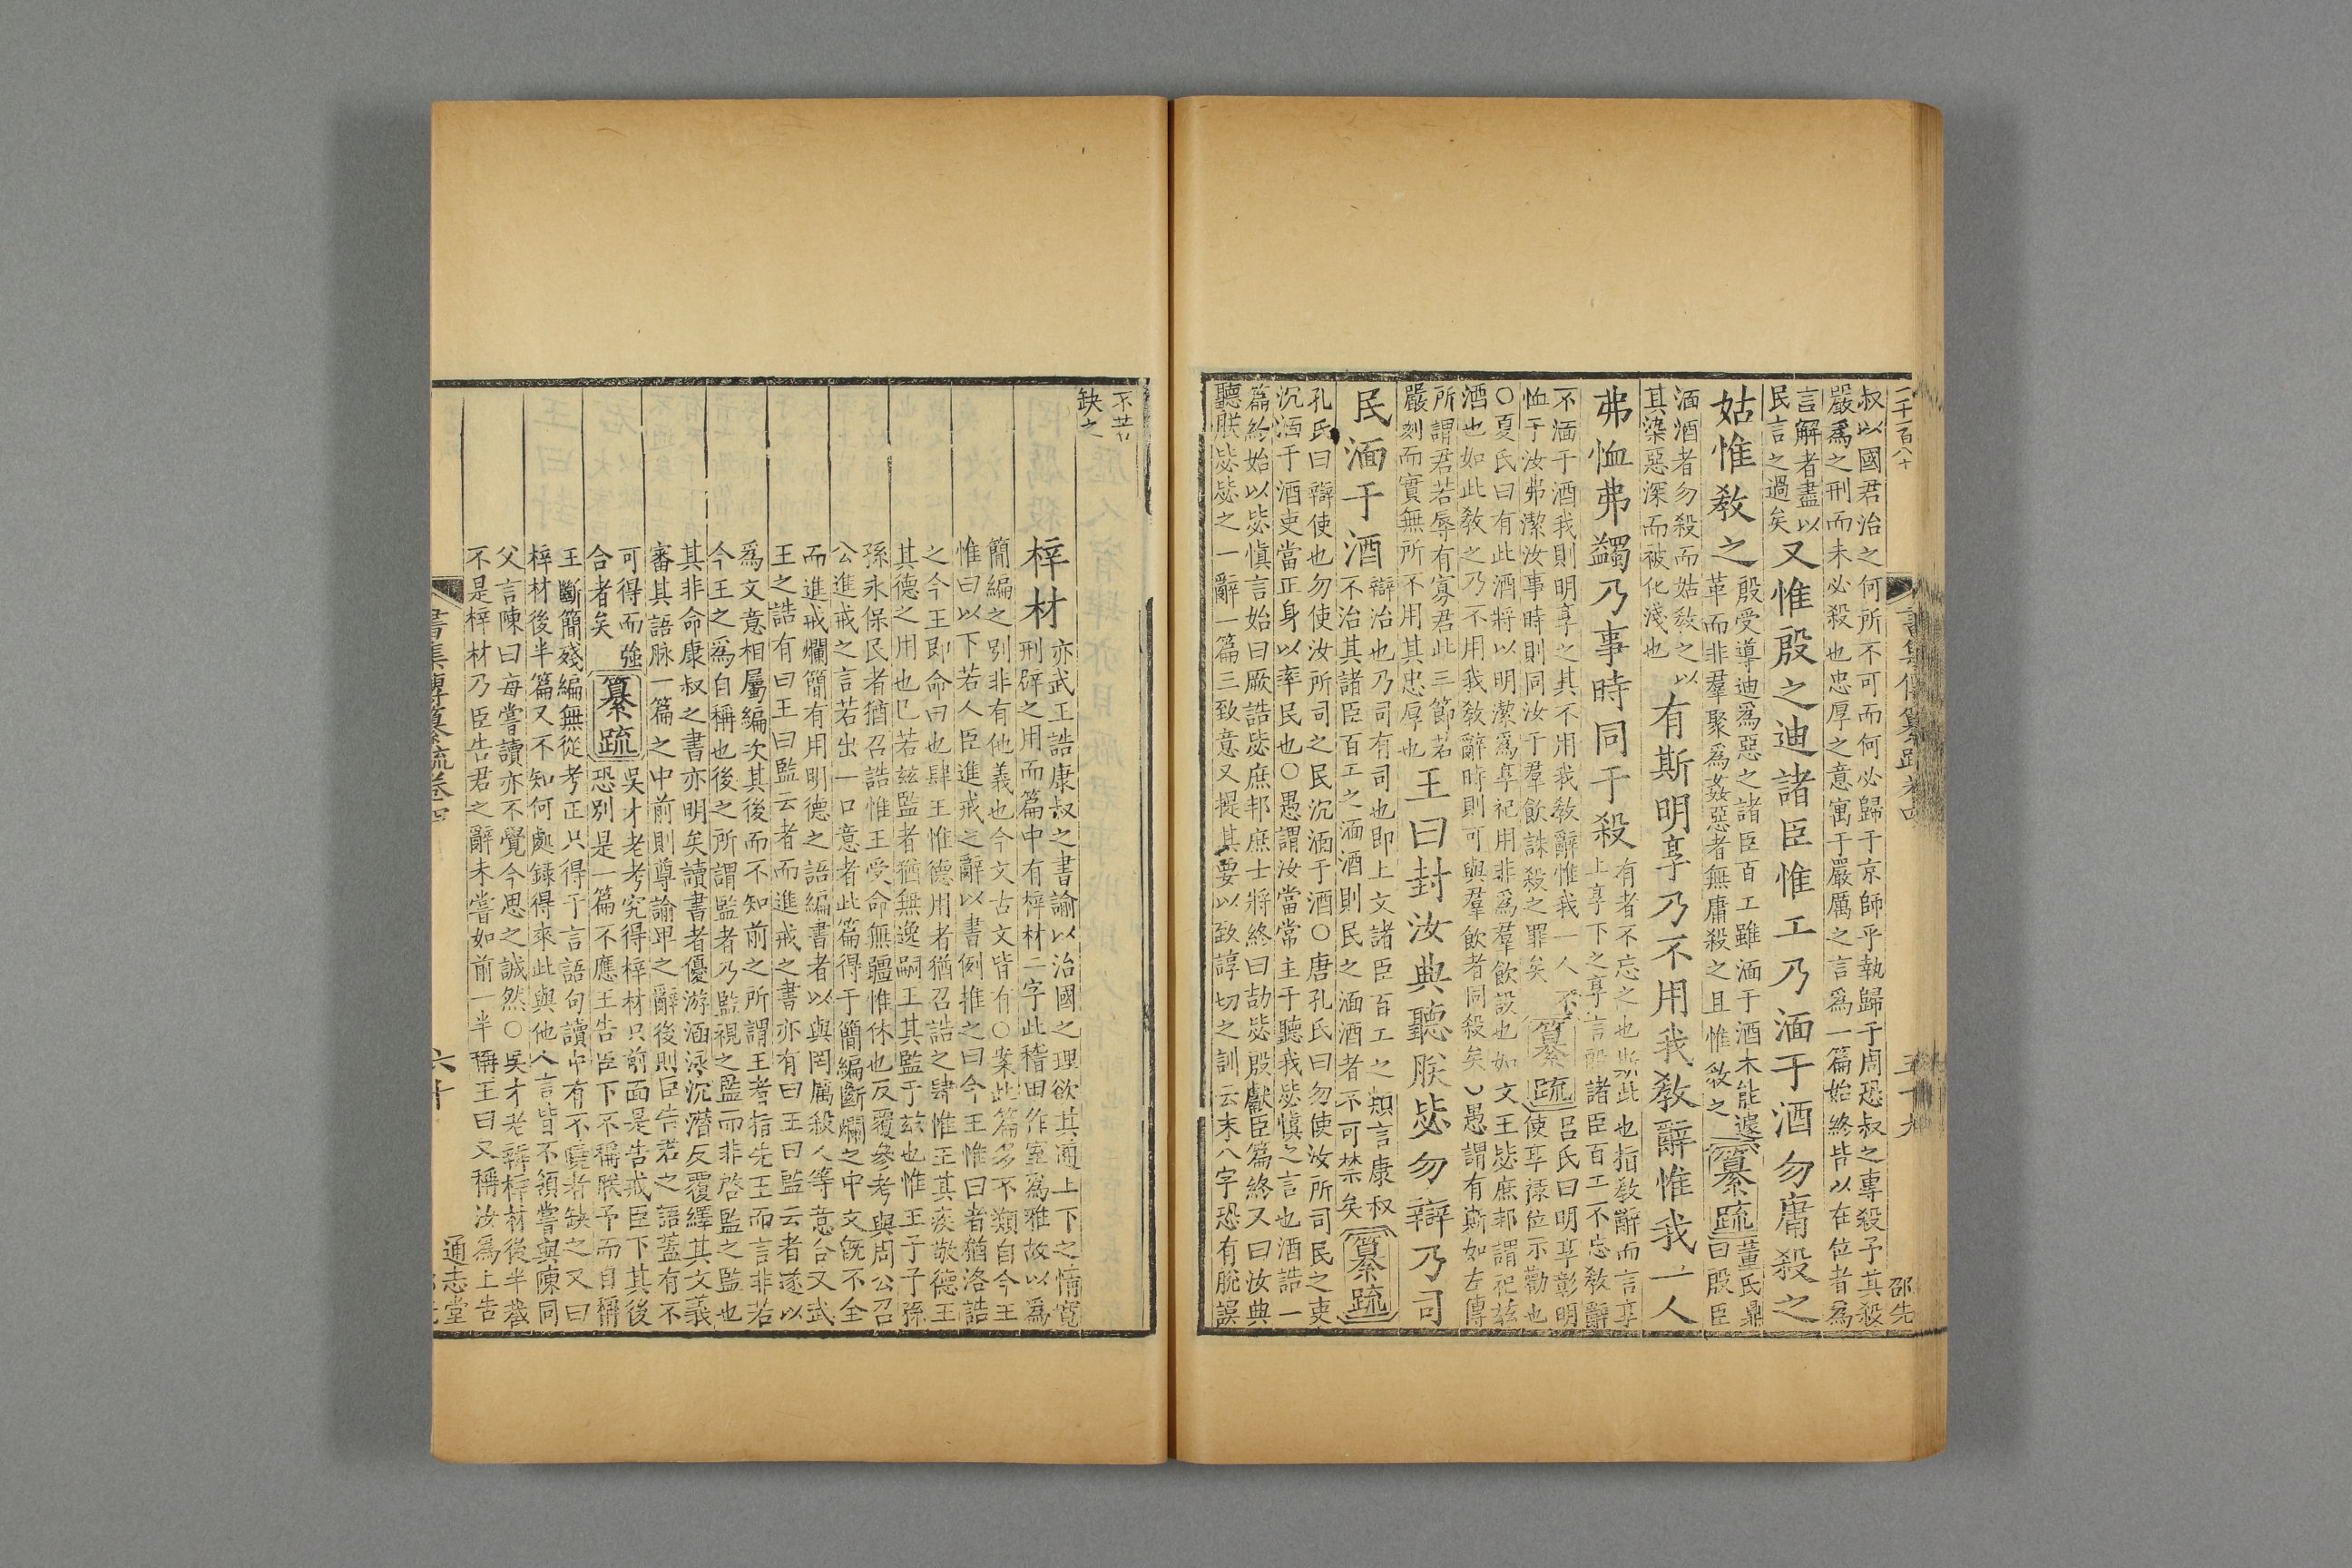 二千一百八十
書集傳纂疏卷四
五十九
邵先
叔以國君治之何所不可而何必歸于京師乎執歸于周恐叔之專殺予其殺
嚴爲之刑而未必殺也忠厚之意寓于嚴厲之言爲一篇始終皆以在位者爲
言解者盡以
民言之過矣
又惟殷之迪諸臣惟工乃湎于酒勿庸殺之
姑惟教之
殷受導迪爲惡之諸臣百工雖湎于酒未能遽
革而非羣聚爲姦惡者無庸殺之且惟教之
纂疏
董氏鼎
曰殷臣
湎酒者勿殺而姑教之以
其染惡深而被化淺也
有斯明享乃不用我教辭惟我一人
弗恤弗蠲乃事時同于殺
有者不忘之也斯此也指教辭而言享
上享下之享言殷諸臣百工不忘教辭
不湎于酒我則明享之其不用我教辭惟我一人不
恤于汝弗潔汝事時則同汝于羣飲誅殺之罪矣
纂疏
呂氏曰明享彰明
使享祿位示勸也
○夏氏曰有此酒將以明潔爲享祀用非爲羣飲設也如文王毖庶邦謂祀茲
酒也如此教之乃不用我教辭時則可與羣飲者同殺矣○愚謂有斯如左傳
所謂君若辱有寡君此三節若
嚴刻而實無所不用其忠厚也
王曰封汝典聽朕毖勿辯乃司
民湎于酒
辯治也乃司有司也即上文諸臣百工之類言康叔
不治其諸臣百工之湎酒則民之湎酒者不可禁矣
纂疏
孔氏曰辯使也勿使汝所司之民沉湎于酒○唐孔氏曰勿使汝所司民之吏
沉湎于酒吏當正身以率民也○愚謂汝當常主于聽我毖慎之言也酒誥一
篇終始以毖慎言始曰厥誥毖庶邦庶士將終曰劼毖殷獻臣篇終又曰汝典
聽朕毖毖之一辭一篇三致意又提其要以致諄切之訓云末八字恐有脫誤
不甘
缺之
梓材
亦武王誥康叔之書諭以治國之理欲其通上下之情寬
刑辟之用而篇中有梓材二字此稽田作室爲雅故以爲
簡編之別非有他義也今文古文皆有○案此篇多不類自今王
惟曰以下若人臣進戒之辭以書例推之曰今王惟曰者猶洛誥
之今王即命曰也肆王惟德用者猶召誥之肆惟王其疾敬德王
其德之用也已若茲監者猶無逸嗣王其監于茲也惟王子子孫
孫永保民者猶召誥惟王受命無疆惟休也反覆參考與周公召
公進戒之言若出一口意者此篇得于簡編斷爛之中文既不全
而進戒爛簡有用明德之語編書者以與罔厲殺人等意合又武
王之誥有曰王曰監云者而進戒之書亦有曰王曰監云者遂以
爲文意相屬編次其後而不知前之所謂王者指先王而言非若
今王之爲自稱也後之所謂監者乃監視之監而非啓監之監也
其非命康叔之書亦明矣讀書者優游涵泳沉潛反覆繹其文義
審其語脉一篇之中前則尊諭卑之辭後則臣告君之語蓋有不
可得而強
合者矣
纂疏
吳才老考究得梓材只前面是告戒臣下其後
恐別是一篇不應王告臣下不稱朕予而自稱
王斷簡殘編無從考正只得于言語句讀中有不曉者缺之又曰
梓材後半篇又不知何處錄得來此與他人言皆不領嘗與陳同
父言陳曰每嘗讀亦不覺今思之誠然○吳才老辯梓材後半截
不是梓材乃臣告君之辭未嘗如前一半稱王曰又稱汝爲上告
書集傳纂疏卷四
六十
通志堂